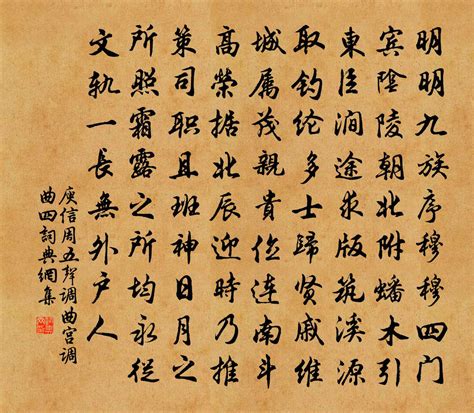 明明九族序穆穆四门
宾陰陵朝北附蟠木引
東臣涧途求版筑溪源
取钓纶多士歸贤戚维
城属茂親貴位连南斗
高榮据北辰迎時乃推
策司职且班神日月之
所照霜露之所均永從
文轨一長無外户人
庾信周五聲調曲宫調
曲四詞典網集